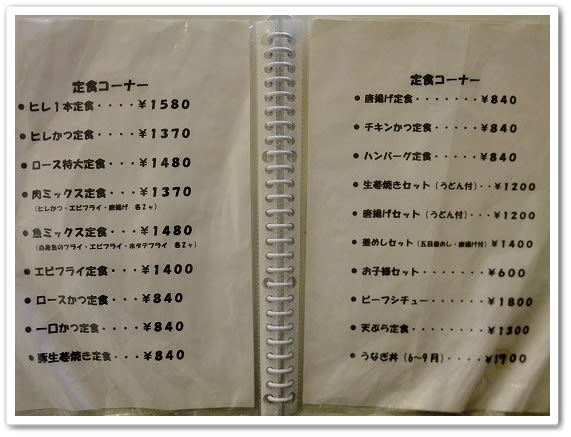 定食コーナー
●ヒレ1本定食・・・・¥1580
●ヒレかつ定食・・・・¥1370
●ロース特大定食・・・¥1480
●肉ミックス定食・・・¥1370
(ヒレかつ・エビフライ・唐揚げ 各2ヶ)
●魚ミックス定食・・・¥1480
(白身魚のフライ・エビフライ・ホタテフライ 各2ヶ)
●エビフライ定食・・・¥1400
●ロースかつ定食・・・¥840
●一口かつ定食・・・¥840
●豚生姜焼き定食・・・¥840
定食コーナー
●唐揚げ定食・・・・・・・¥840
●チキンかつ定食・・・・・¥840
●ハンバーグ定食・・・・・¥840
●生姜焼きセット(うどん付)・・¥1200
●唐揚げセット(うどん付)・・・¥1200
●釜めしセット(五目釜めし・唐揚げ付)・¥1400
●お子様セット・・・・・・¥600
●ビーフシチュー・・・・・¥1800
●天ぷら定食・・・・・・・¥1300
●うなぎ丼(6~9月)・・・・¥1700